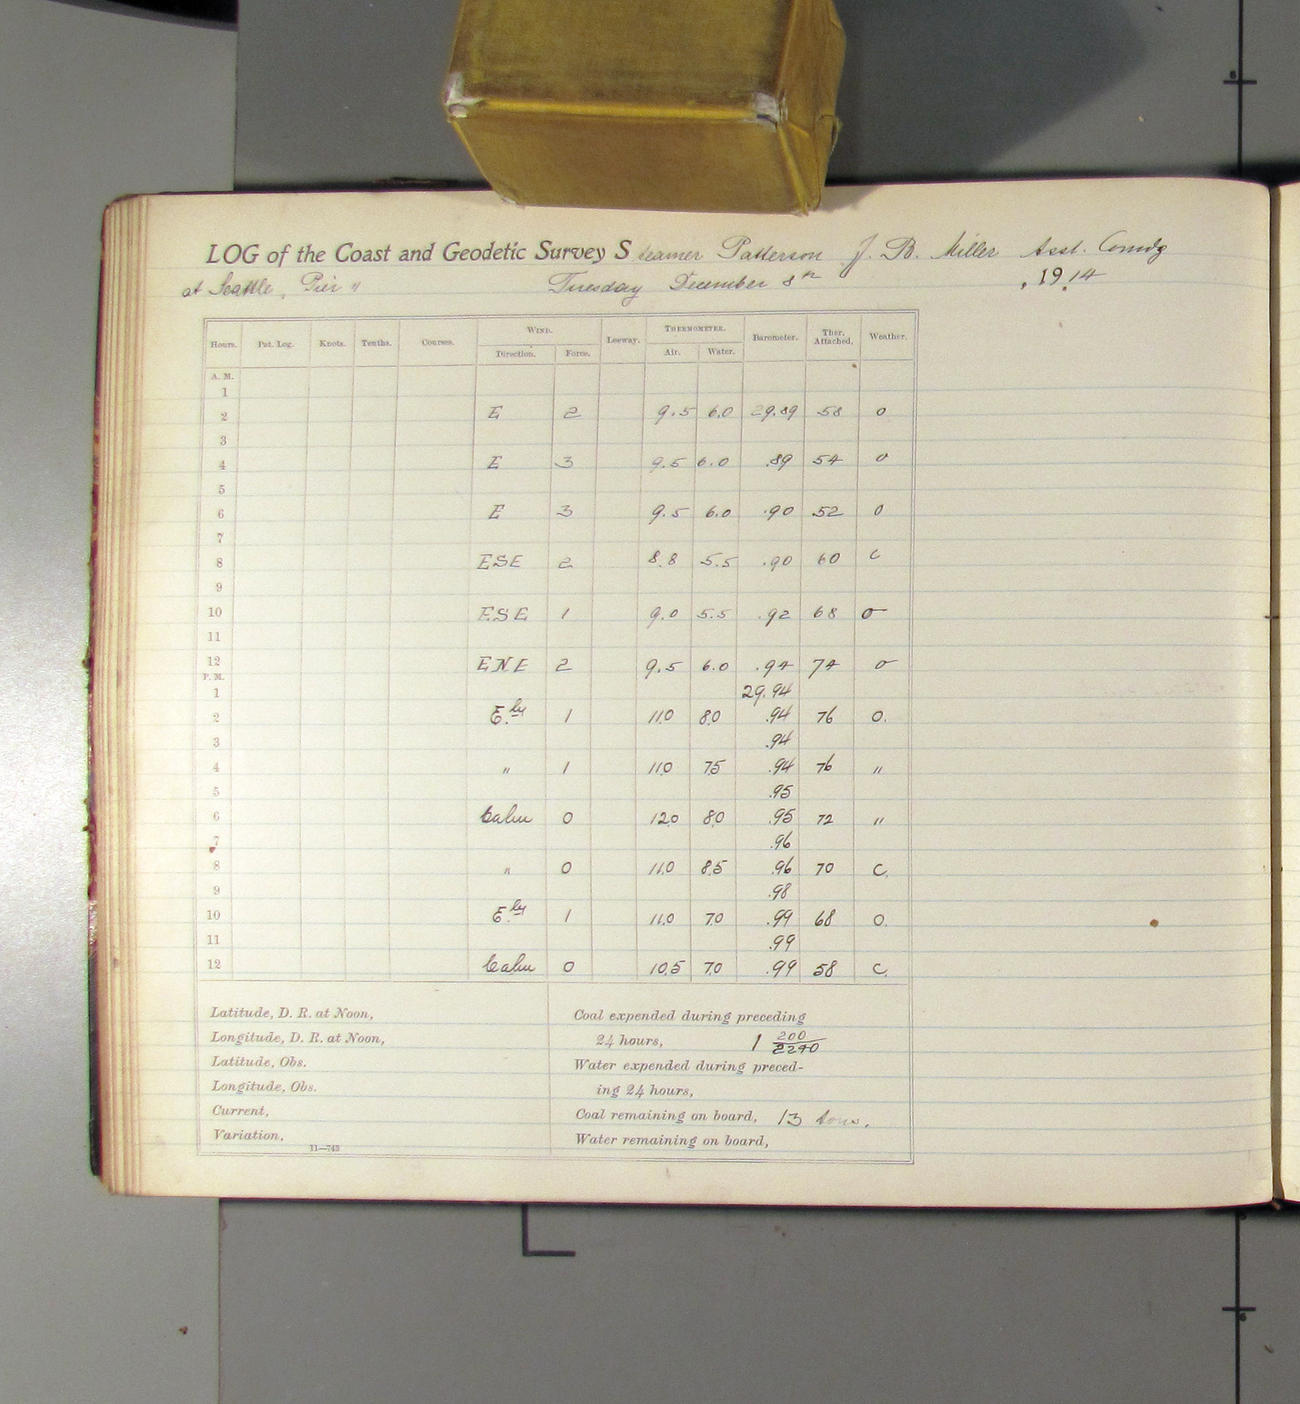 LOG of the Coast and Geodetic Survey Steamer Patterson J. B. Miller Asst. Comdg
at Seattle, Pier " Tuesday December 8th , 1914
Hours. Pat. Log. Knots. Tenths. Courses. WIND. Leeway. THERMOMETER. Barometer. Ther. Attached. Weather.
Direction. Force. Air. Water.
A. M.
1
2 E 2 9.5 6.0 29.89 58 o
3
4 E 3 9.5 6.0 .89 54 o
5
6 E 3 9.5 6.0 .90 52 o
7
8 ESE 2 8.8 5.5 .90 60 c
9
10 ESE 1 9.0 5.5 .92 68 o
11
12 ENE 2 9.5 6.0 .94 74 o
P. M.
1 29.94
2 E.ly 1 11.0 8.0 .94 76 O.
3 .94
4 " 1 11.0 7.5 .94 76 "
5 .95
6 Calm 0 12.0 8.0 .95 72 "
7 .96
8 " 0 11.0 8.5 .96 70 C.
9 .98
10 E.ly 1 11.0 7.0 .99 68 O.
11 .99
12 Calm 0 10.5 7.0 .99 58 C.
Latitude, D. R. at Noon, Coal expended during preceding
Longitude, D. R. at Noon, 24 hours, 1 200/2240
Latitude, Obs. Water expended during preced-
Longitude, Obs. ing 24 hours,
Current, Coal remaining on board, 13 tons.
Variation, Water remaining on board,
11—743